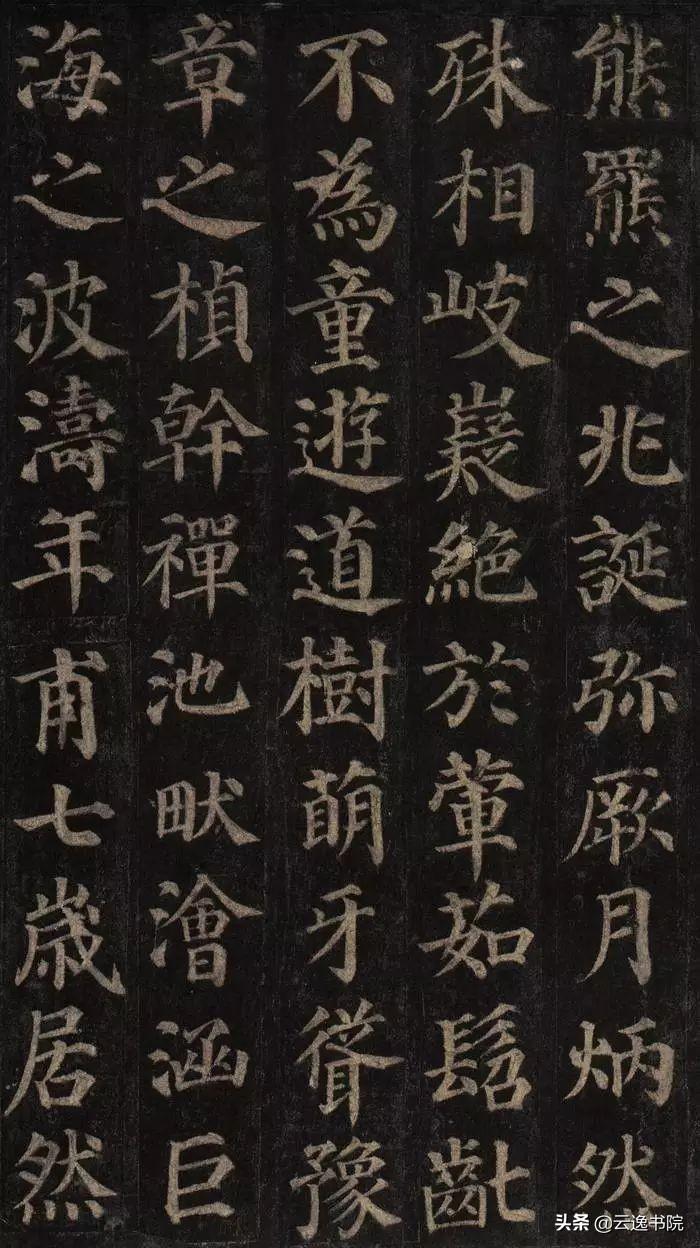 熊羆之兆誕弥厥月炳然
殊相岐嶷絕於葷茹髫齔
不為童遊道樹萌牙聳豫
章之楨幹禪池畎澮涵巨
海之波濤年甫七歲居然
头条 @云逸书院